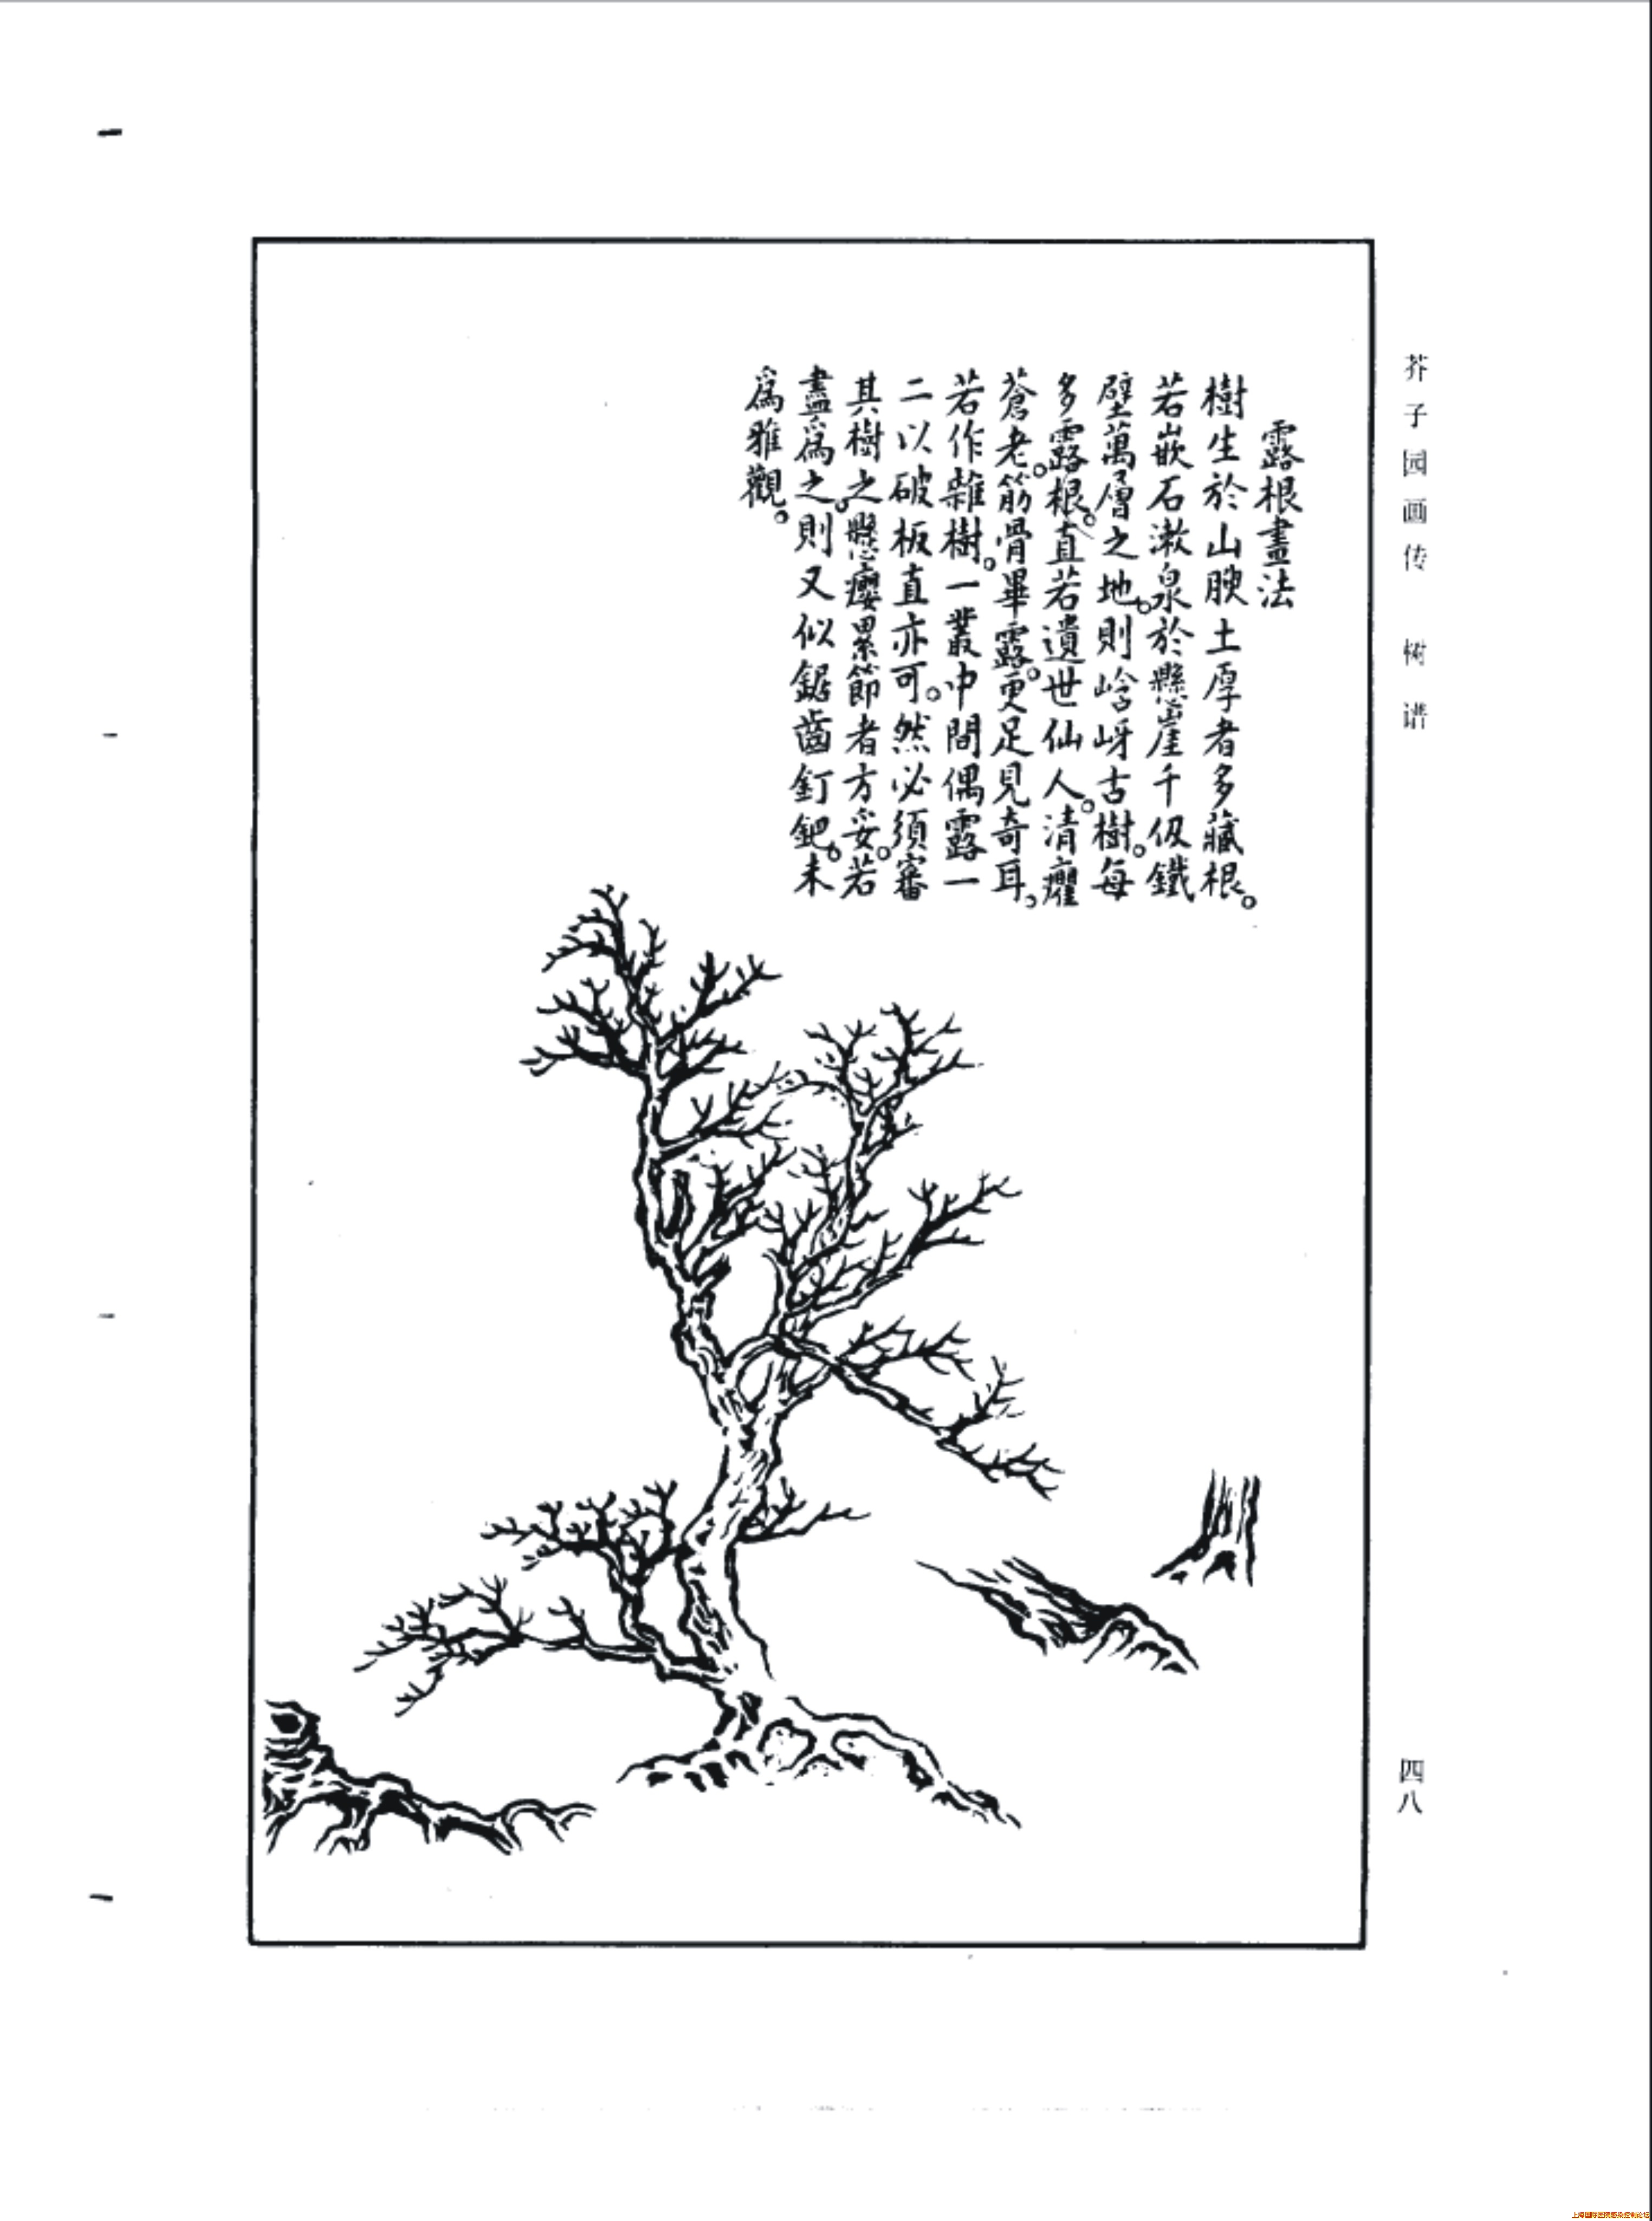 芥子园画传 树谱
露根畫法
樹生於山腴土厚者多藏根。
若嵌石漱泉於懸崖千仭鐵
壁萬層之地。則崿岈古樹。每
多露根。直若遺世仙人。清癯
蒼老。筋骨畢露。更足見奇耳。
若作雜樹。一叢中間偶露一
二以破板直亦可。然必須審
其樹之懸癭累節者方妥。若
盡爲之。則又似鋸齒釘鈀。未
爲雅觀。
四八
上海国际医院感染控制论坛